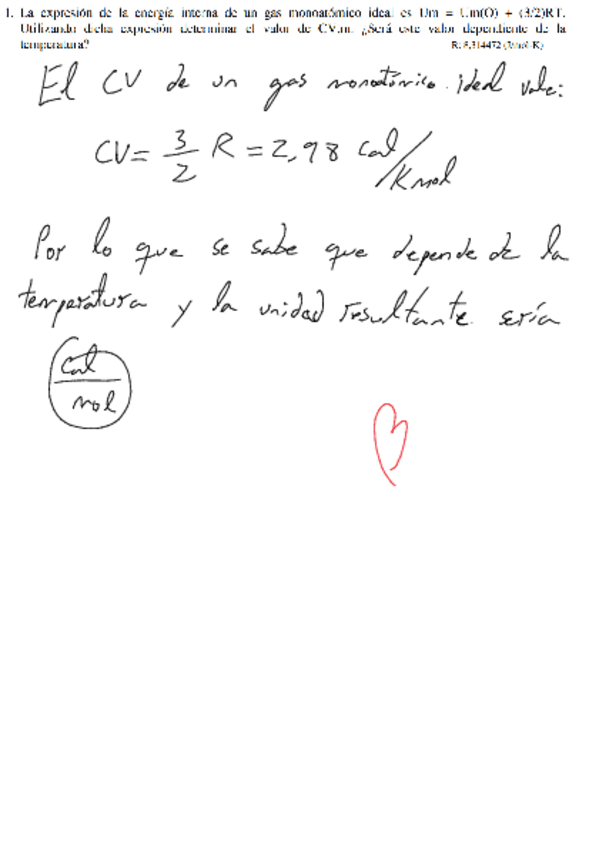 1. La expresión de la energía interna de un gas monoatómico ideal es Um = Um(O) + (3/2)RT.
Utilizando dicha expresión determinar el valor de CV,m. ¿Será este valor dependiente de la
temperatura? R: 8,314472 (J/mol·K)
El CV de un gas monoatómico ideal vale:
CV = 3/2 R = 2,98 Cal/K mol
Por lo que se sabe que depende de la
temperatura y la unidad resultante sería
Cal/mol